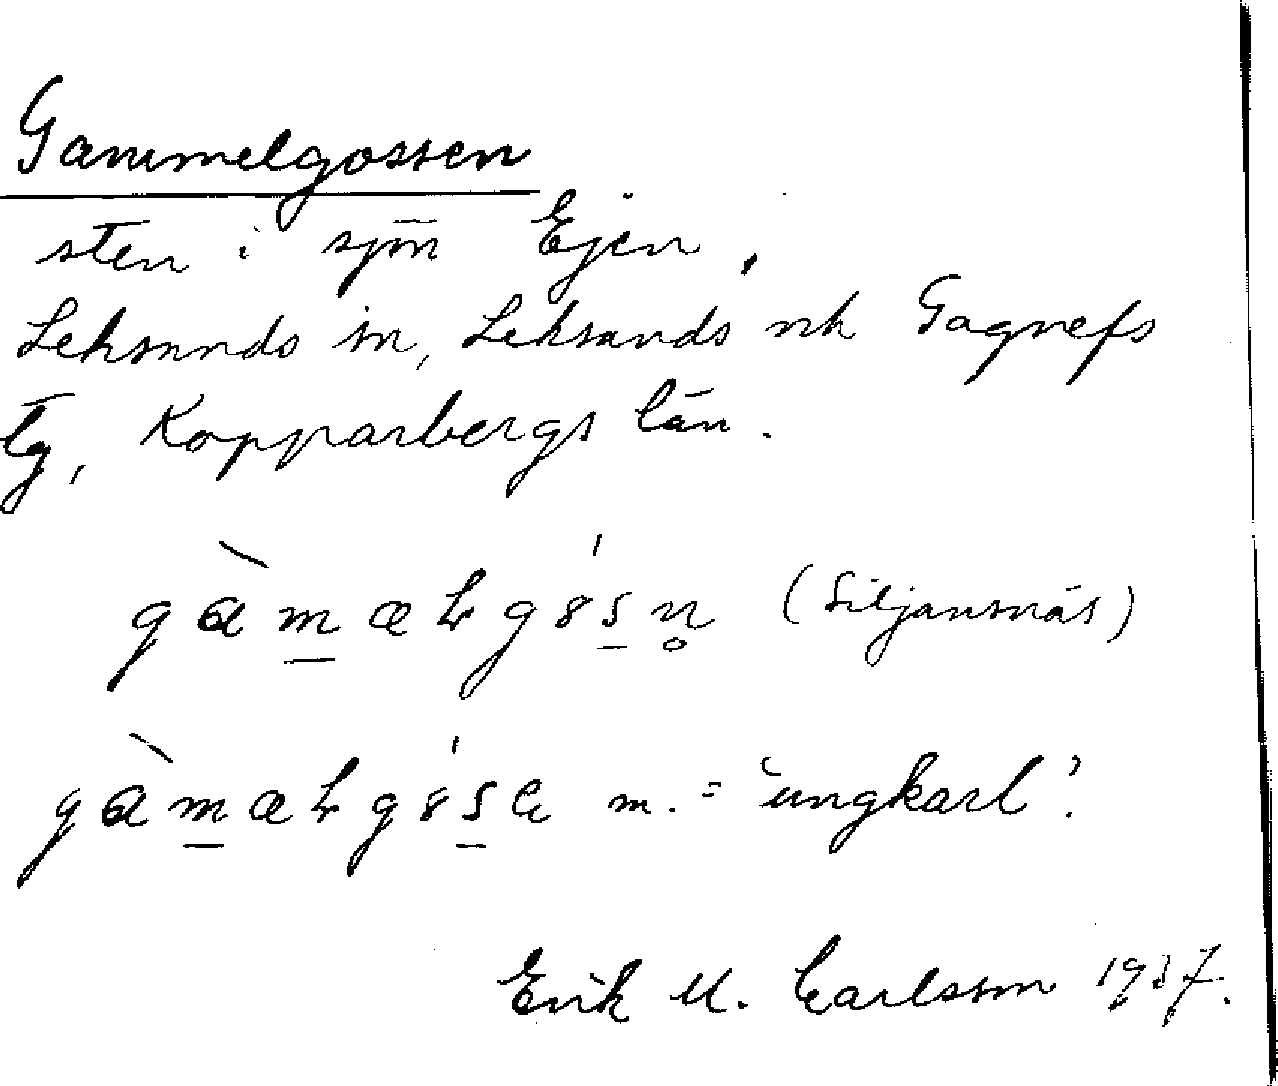 Gammelgossen
sten i sjön Ejen,
Leksands sn, Leksands och Gagnefs
tg, Kopparbergs län.
(Siljansnäs)
m. = 'ungkarl'.
Erik M. Carlsson 1937.